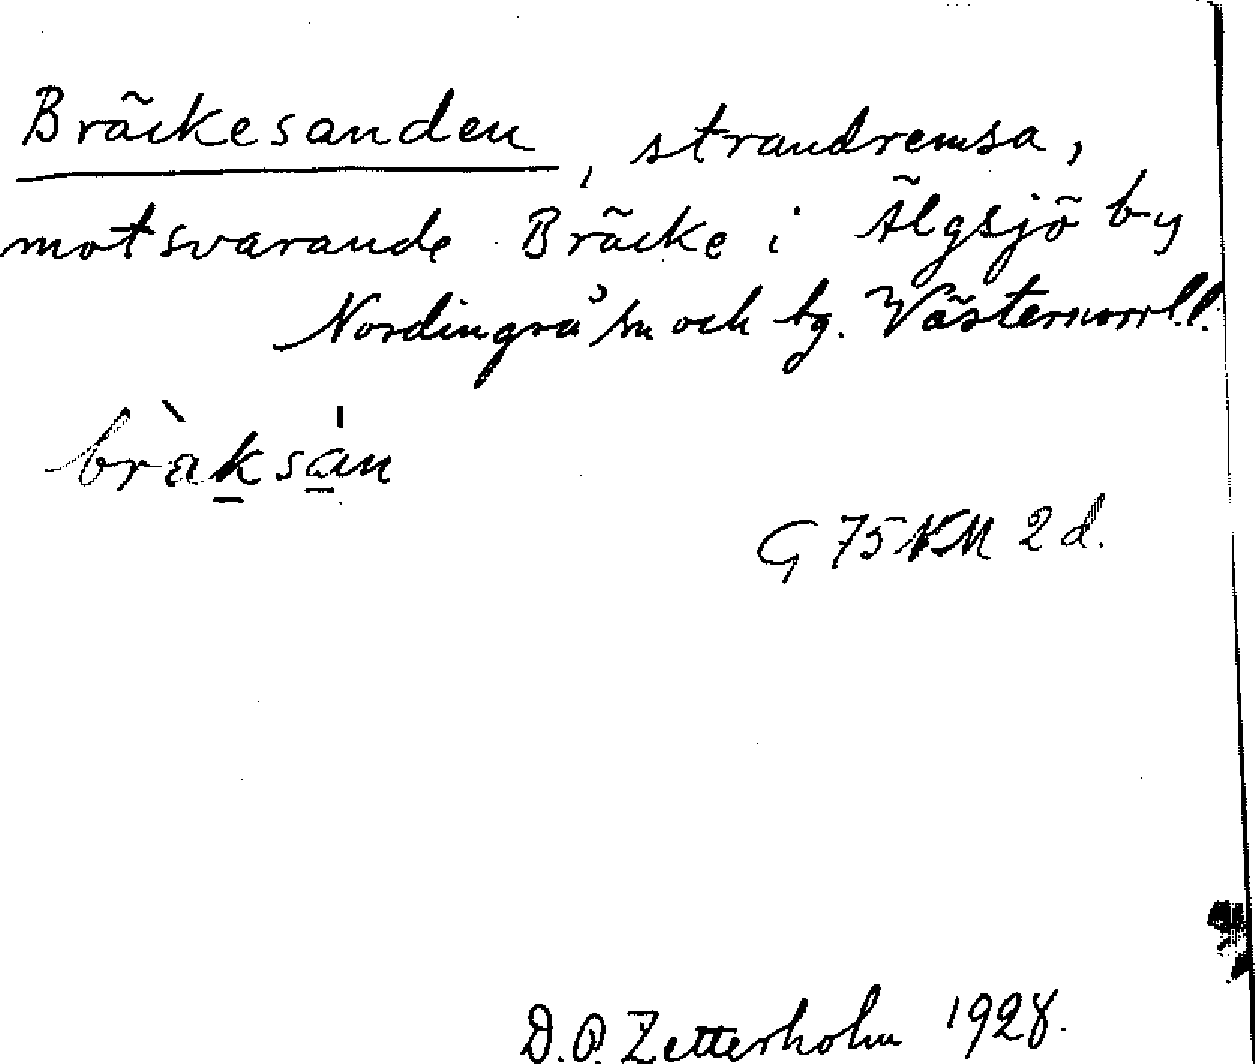 Bräckesanden, strandremsa,
motsvarande Bräcke i Älgsjö by
Nordingrå sn och tg. Västernorrl.l.
bràksán
G 75 NM 2 d.
D.O. Zetterholm 1928.